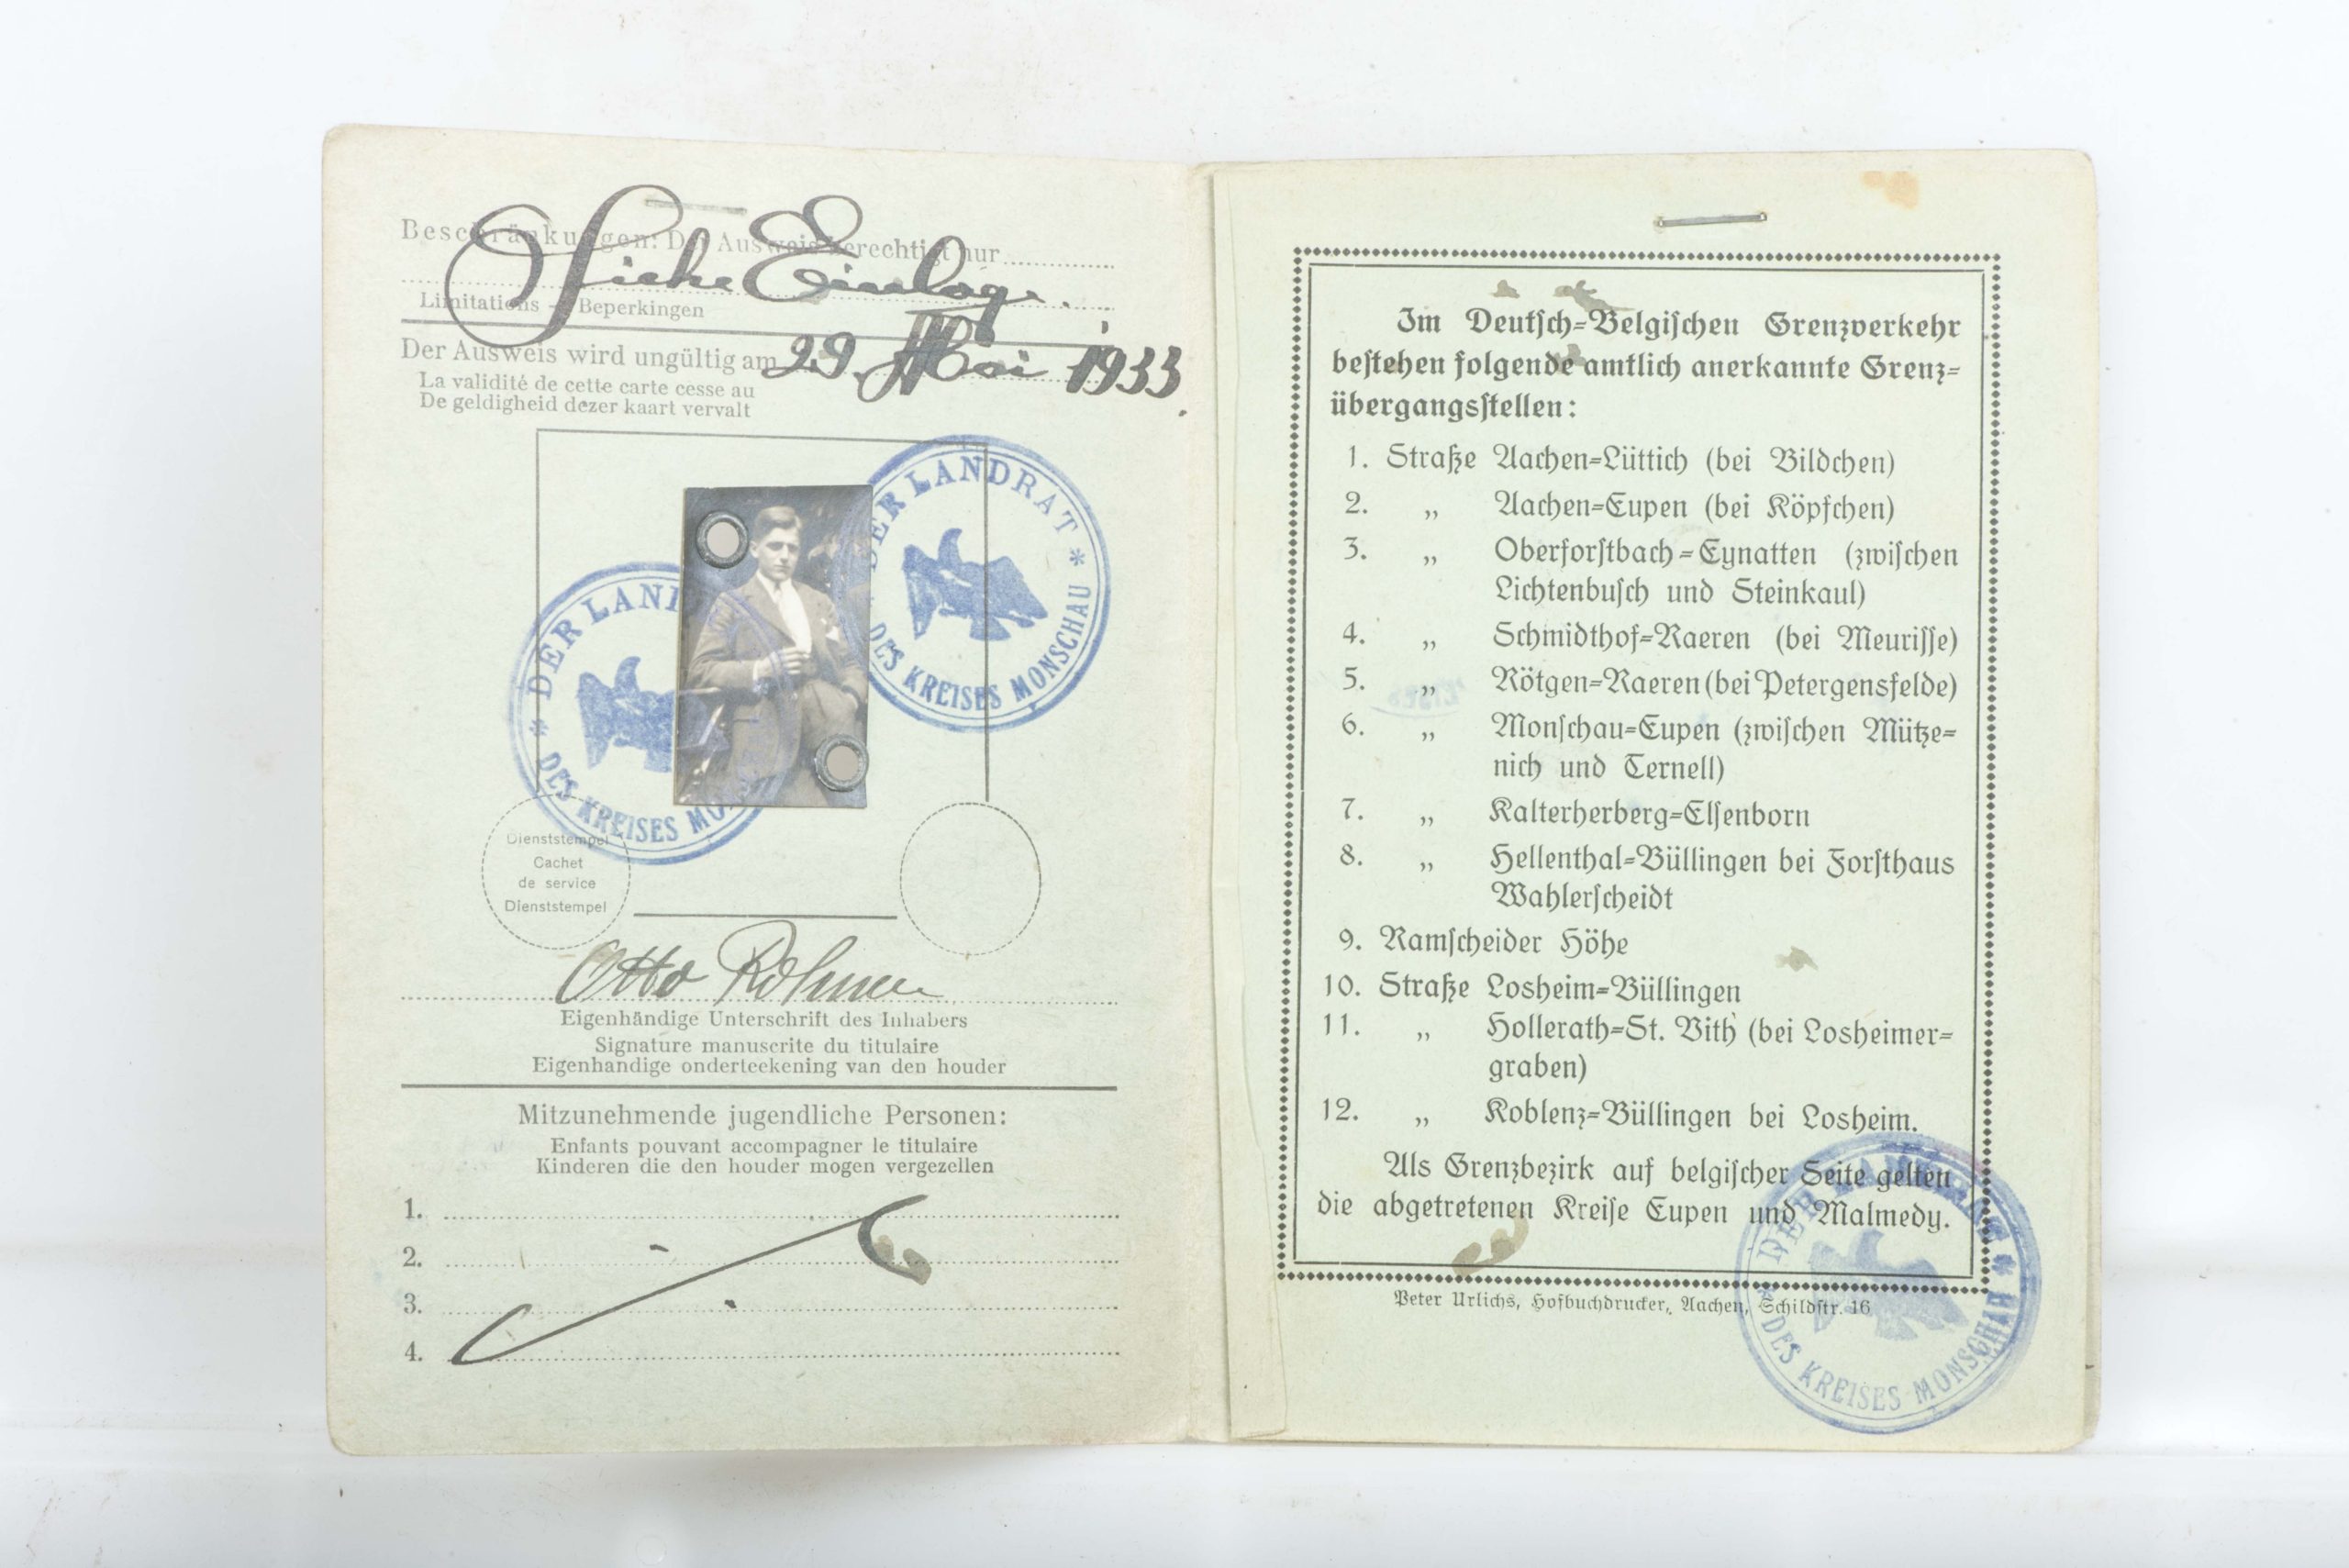 Beschränkungen: Der Ausweis berechtigt nur
Siehe Einlage.
Limitations — Beperkingen
Der Ausweis wird ungültig am 29. Mai 1933.
La validité de cette carte cesse au
De geldigheid dezer kaart vervalt
* DER LANDRAT *
DES KREISES MONSCHAU
* DER LAND
DES KREISES MO
Dienststempel
Cachet
de service
Dienststempel
Otto
Eigenhändige Unterschrift des Inhabers
Signature manuscrite du titulaire
Eigenhandige onderteekening van den houder
Mitzunehmende jugendliche Personen:
Enfants pouvant accompagner le titulaire
Kinderen die den houder mogen vergezellen
1.
2.
3.
4.
Im Deutſch=Belgiſchen Grenzverkehr
beſtehen folgende amtlich anerkannte Grenz=
übergangsſtellen:
1. Straße Aachen=Lüttich (bei Bildchen)
2. „ Aachen=Eupen (bei Köpfchen)
3. „ Oberforſtbach=Eynatten (zwiſchen
Lichtenbuſch und Steinkaul)
4. „ Schmidthof=Raeren (bei Meuriſſe)
5. „ Rötgen=Raeren (bei Petergensfelde)
6. „ Monſchau=Eupen (zwiſchen Mütze=
nich und Ternell)
7. „ Kalterherberg=Elſenborn
8. „ Hellenthal=Büllingen bei Forſthaus
Wahlerſcheidt
9. Ramſcheider Höhe
10. Straße Losheim=Büllingen
11. „ Hollerath=St. Vith (bei Losheimer=
graben)
12. „ Koblenz=Büllingen bei Losheim.
Als Grenzbezirk auf belgiſcher Seite gelten
die abgetretenen Kreiſe Eupen und Malmedy.
Peter Urlichs, Hofbuchdrucker, Aachen, Schildſtr. 16
* DER LANDRAT *
DES KREISES MONSCHAU